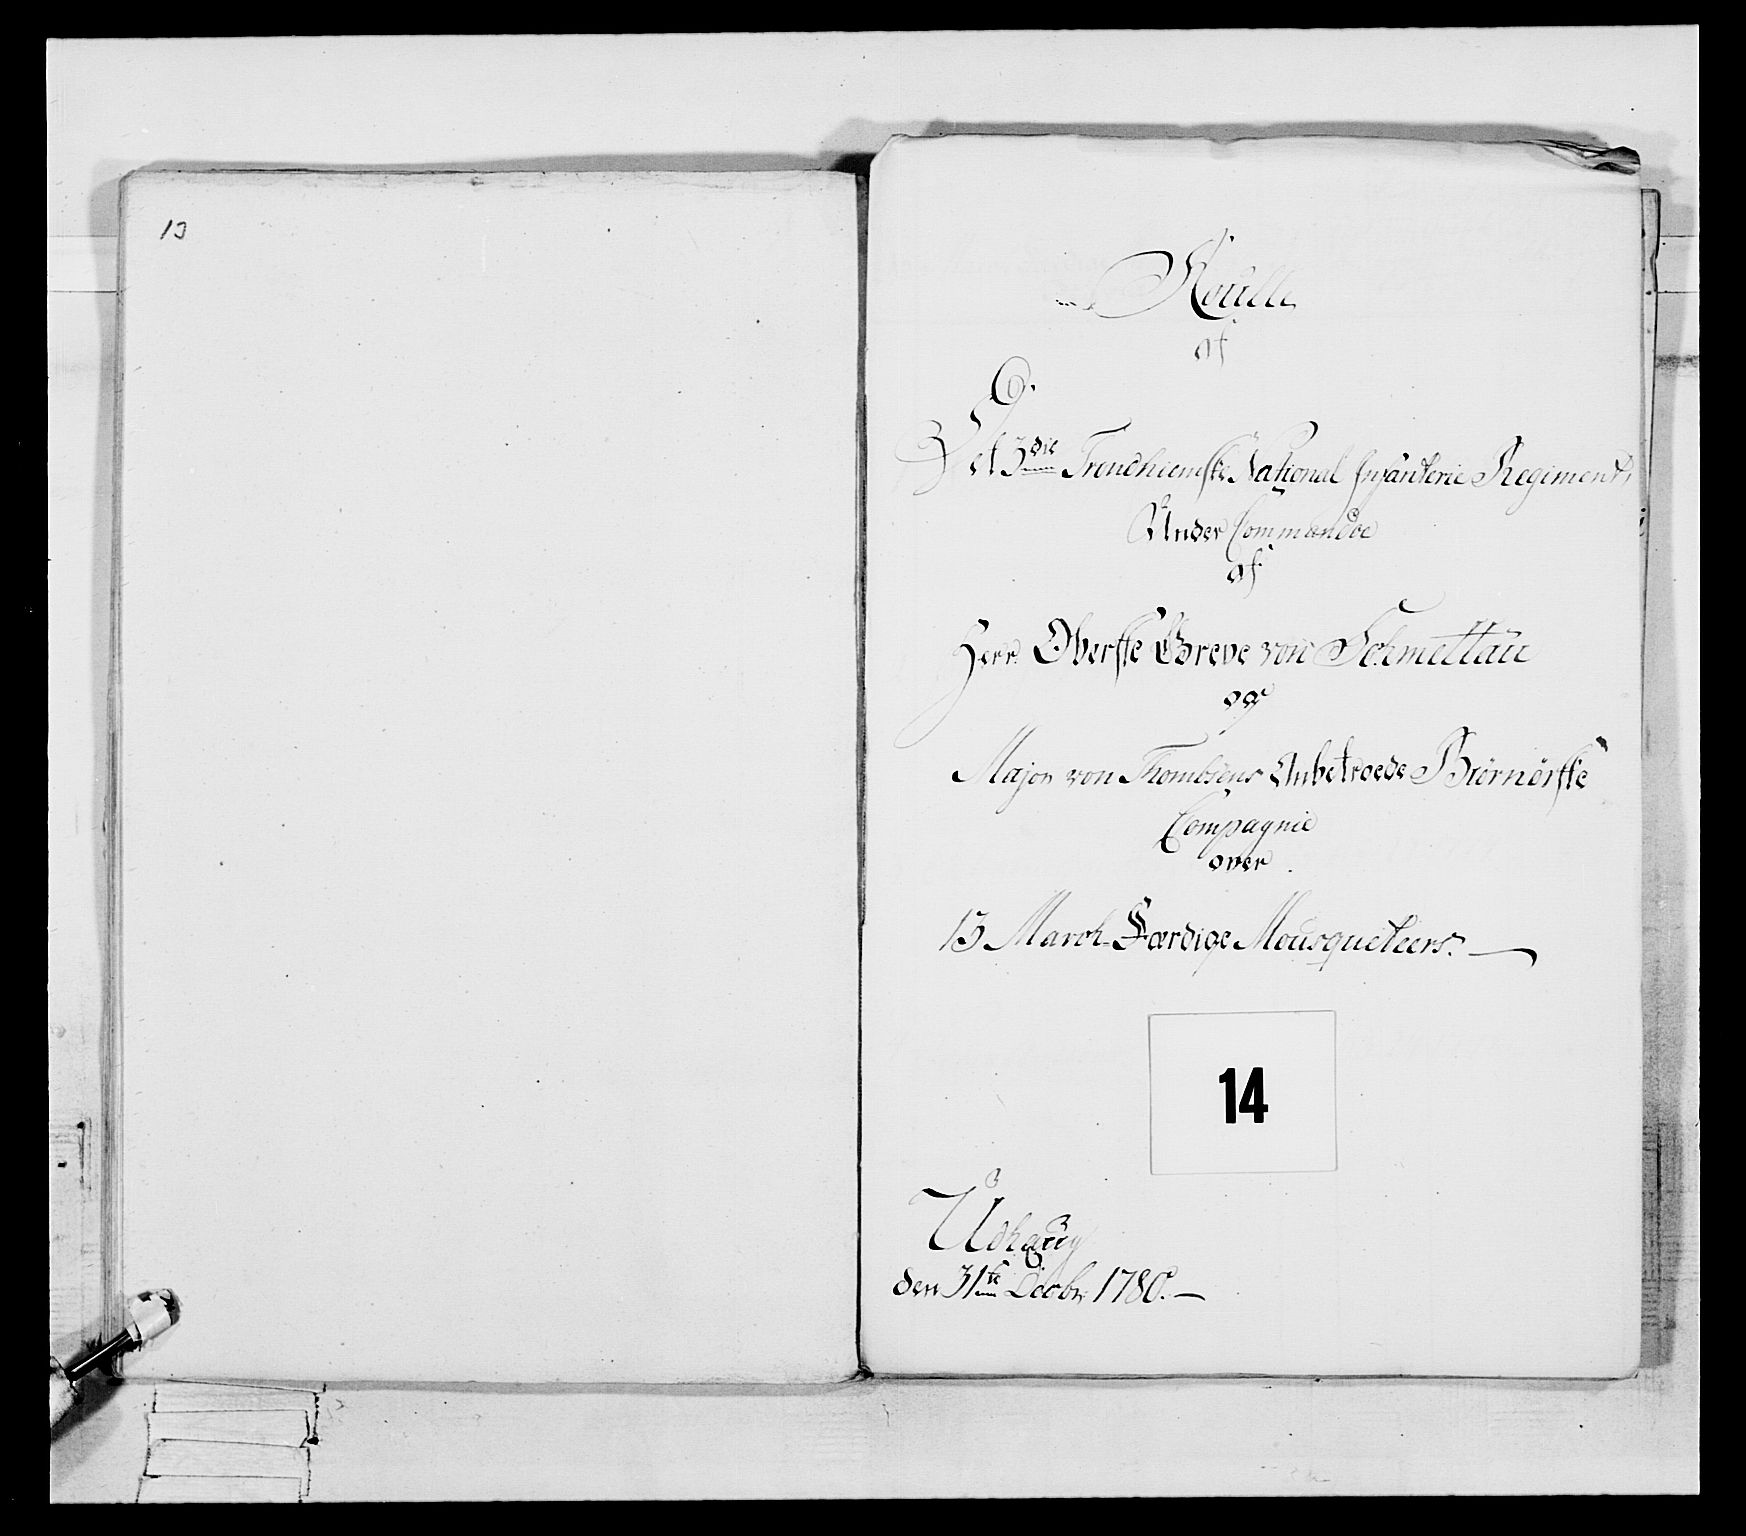 13
Roulle
af
Det 3die Trondhiemske National Infanterie Regiment,
Under Commando
af
Herr Oberste Greve von Schmettau
og
Major von Thombsens Anbetroede Biørnörske
Compagnie
over
13 March-Færdige Mousqueteers.
14
Udhaug
den 31te Decbr 1780.